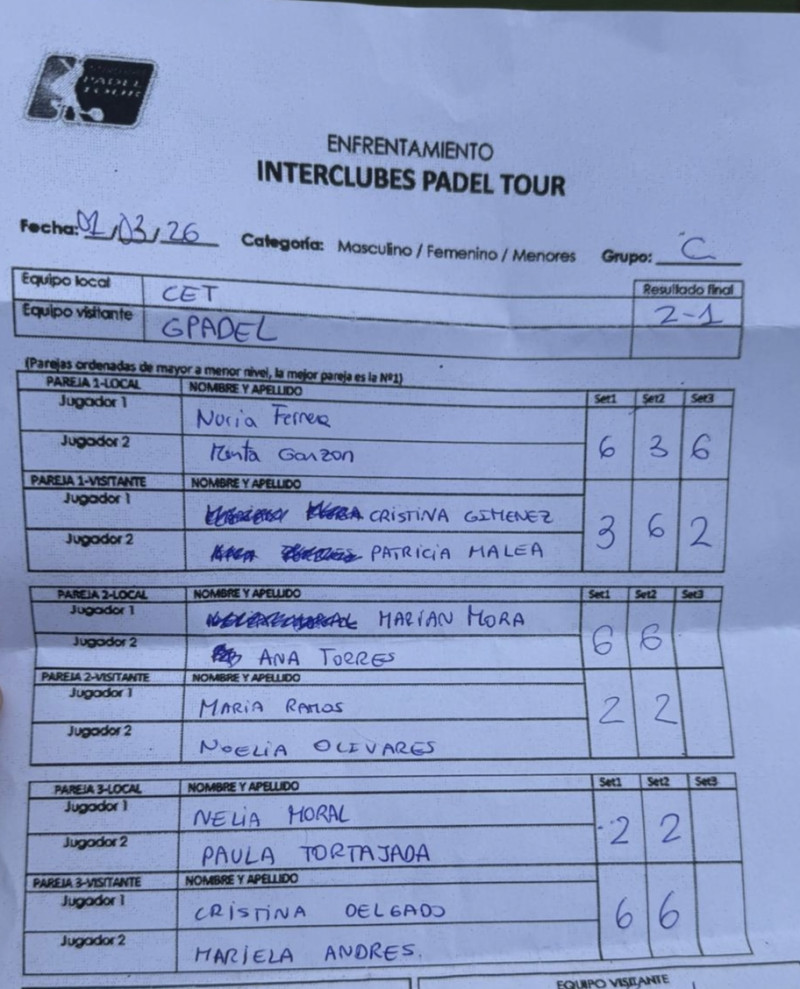 PADEL
TOUR
ENFRENTAMIENTO
INTERCLUBES PADEL TOUR
Fecha: 01/03/26 Categoría: Masculino / Femenino / Menores Grupo: C
Equipo local CET Resultado final
Equipo visitante GPADEL 2-1
(Parejas ordenadas de mayor a menor nivel, la mejor pareja es la Nº1)
PAREJA 1-LOCAL NOMBRE Y APELLIDO Set1 Set2 Set3
Jugador 1 Nuria Ferrer
Jugador 2 Garzon 6 3 6
PAREJA 1-VISITANTE NOMBRE Y APELLIDO
Jugador 1 CRISTINA GIMENEZ
Jugador 2 PATRICIA MALEA 3 6 2
PAREJA 2-LOCAL NOMBRE Y APELLIDO Set1 Set2 Set3
Jugador 1 MARIAN MORA
Jugador 2 ANA TORRES 6 6
PAREJA 2-VISITANTE NOMBRE Y APELLIDO
Jugador 1 MARIA RAMOS
Jugador 2 NOELIA OLIVARES 2 2
PAREJA 3-LOCAL NOMBRE Y APELLIDO Set1 Set2 Set3
Jugador 1 NELIA MORAL
Jugador 2 PAULA TORTAJADA 2 2
PAREJA 3-VISITANTE NOMBRE Y APELLIDO
Jugador 1 CRISTINA DELGADO
Jugador 2 MARIELA ANDRES. 6 6
EQUIPO VISITANTE